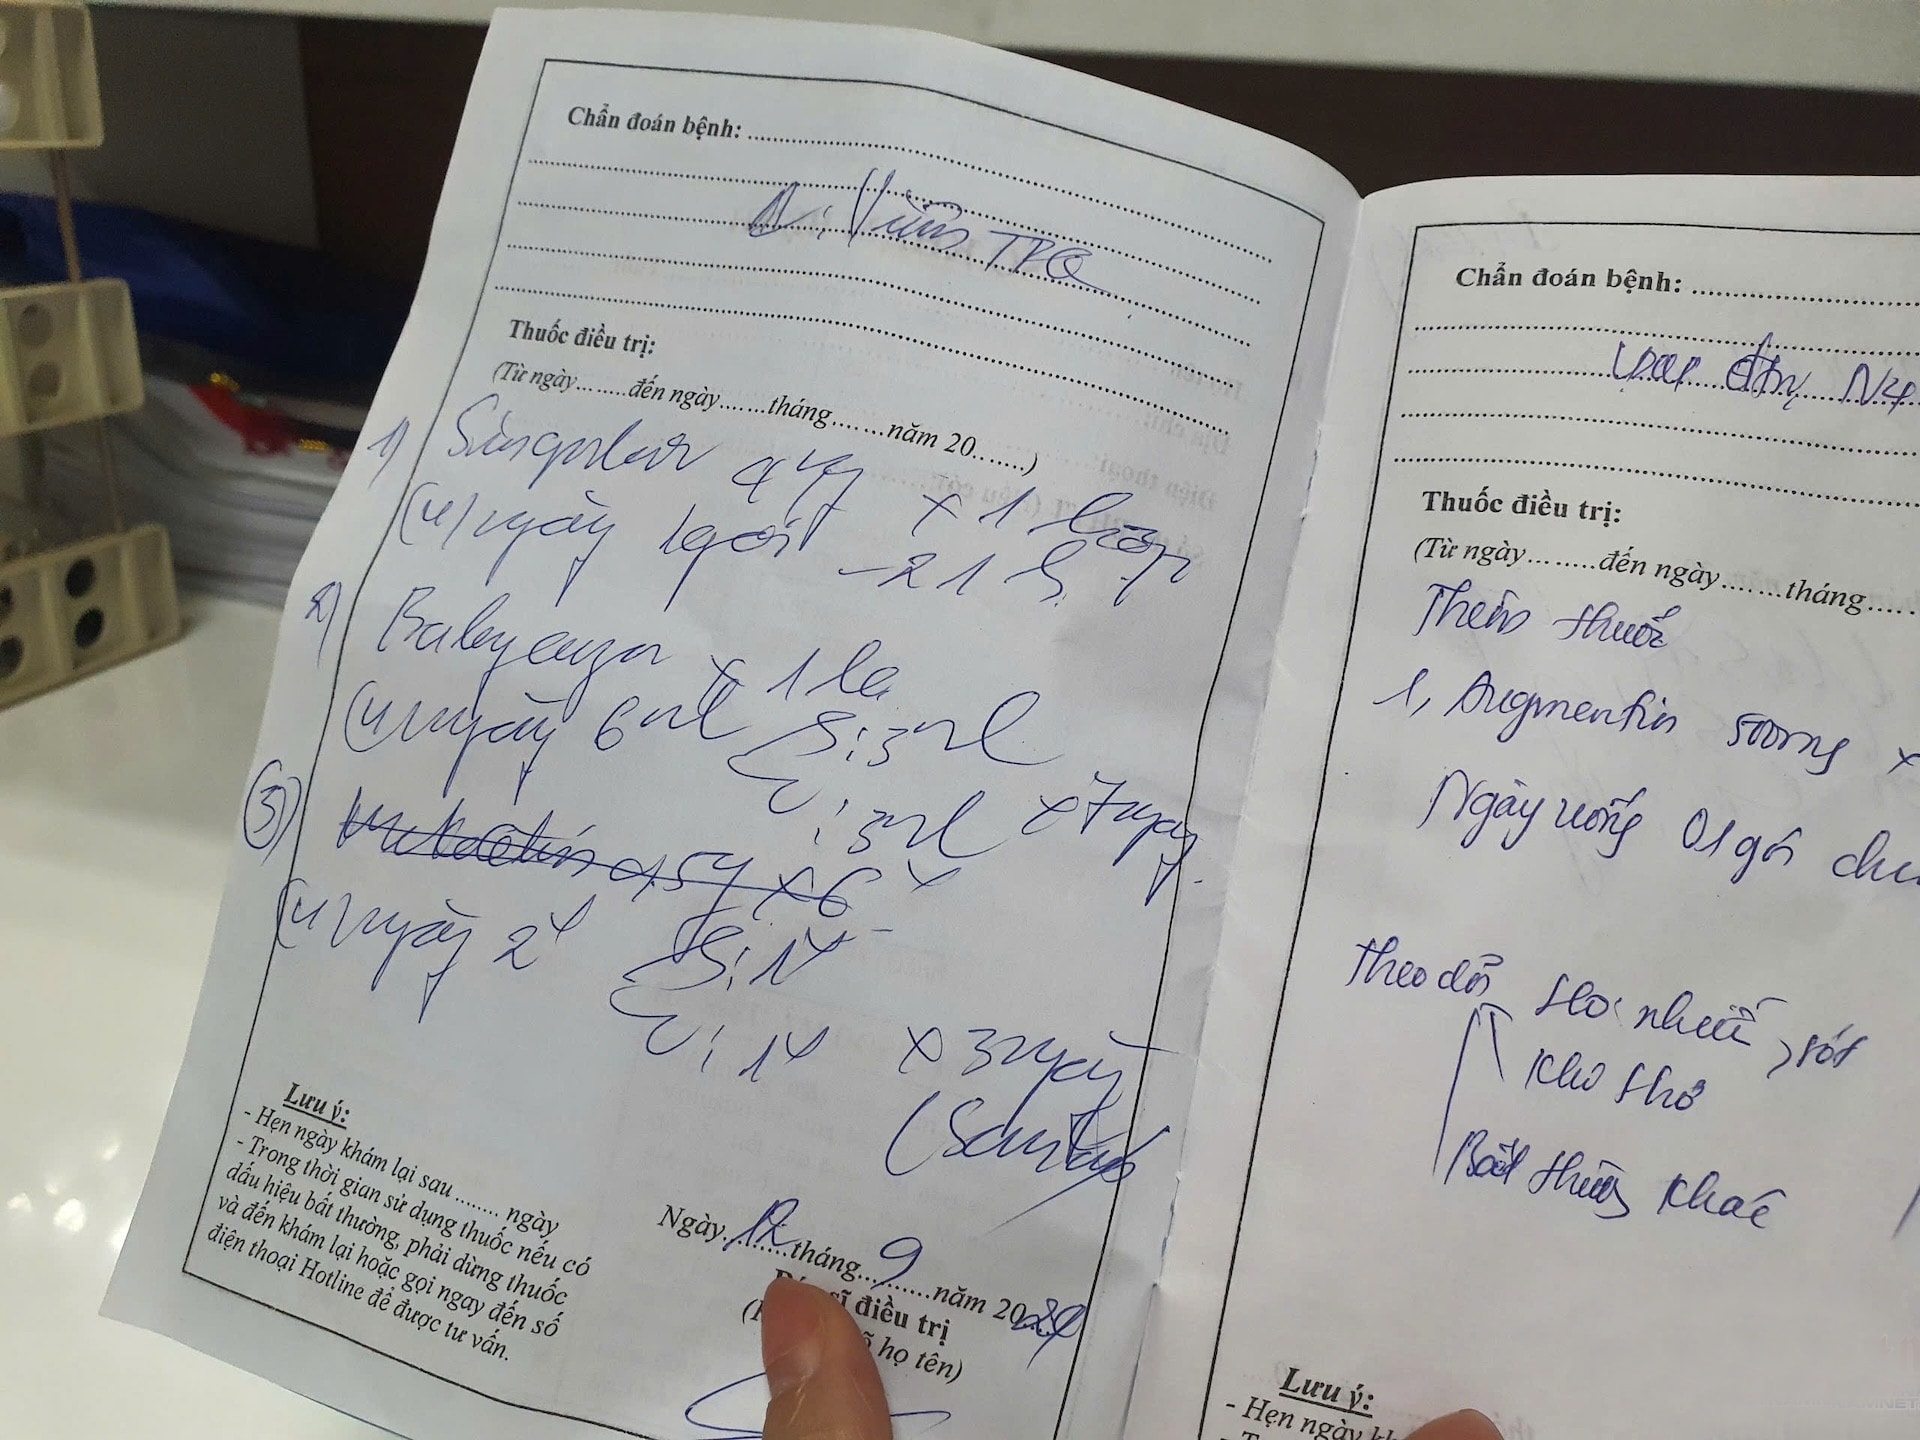 Chẩn đoán bệnh:
D: Viêm TPQ
Thuốc điều trị:
(Từ ngày........đến ngày........tháng........năm 20.......)
1) Singulair 4mg x 1 hộp
(u) ngày 1 gói - 21h
2) x 1 lọ
(u) ngày 6ml S: 3ml
: 3ml x 7 ngày
(3) x 6
(u) ngày 2 S: 1
: 1 x 3 ngày
Lưu ý:
- Hẹn ngày khám lại sau ........ ngày
- Trong thời gian sử dụng thuốc nếu có
dấu hiệu bất thường, phải dừng thuốc
và đến khám lại hoặc gọi ngay đến số
điện thoại Hotline để được tư vấn.
Ngày 12 tháng 9 năm 20
sĩ điều trị
õ họ tên)
Chẩn đoán bệnh:
Thuốc điều trị:
(Từ ngày.........đến ngày........tháng
Thêm thuốc
1, Augmentin 500mg x
Ngày uống 01 gói
Theo dõi Ho nhiều, sốt
Khó thở
Bất thường khác
Lưu ý:
- Hẹn ngày kh